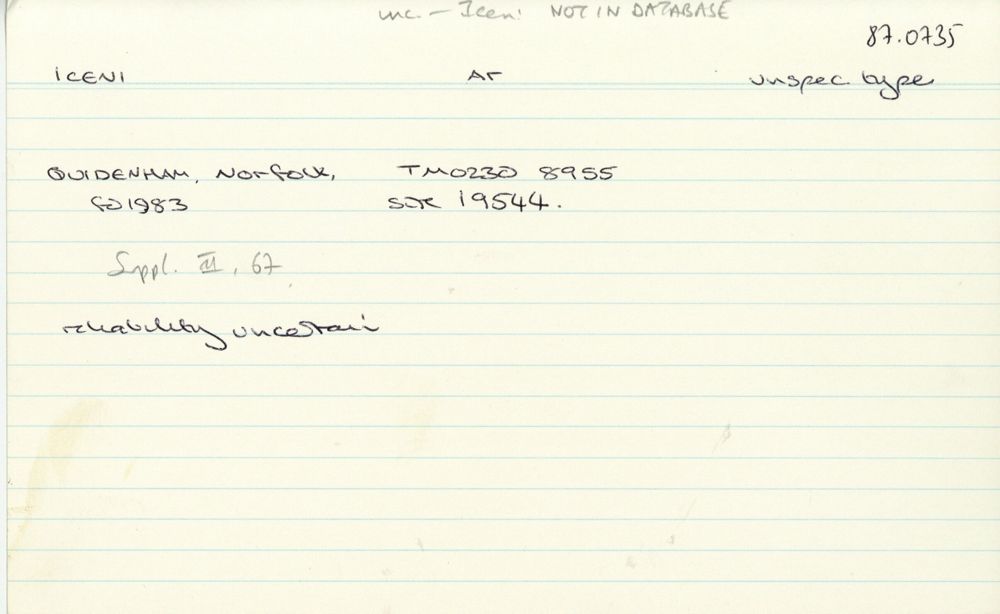 unc. - Iceni NOT IN DATABASE
87.0735
ICENI AR unspec. type
QUIDENHAM, NORFOLK, TM0230 8955
fd 1983 SMR 19544.
Suppl. III, 67
reliability uncertain